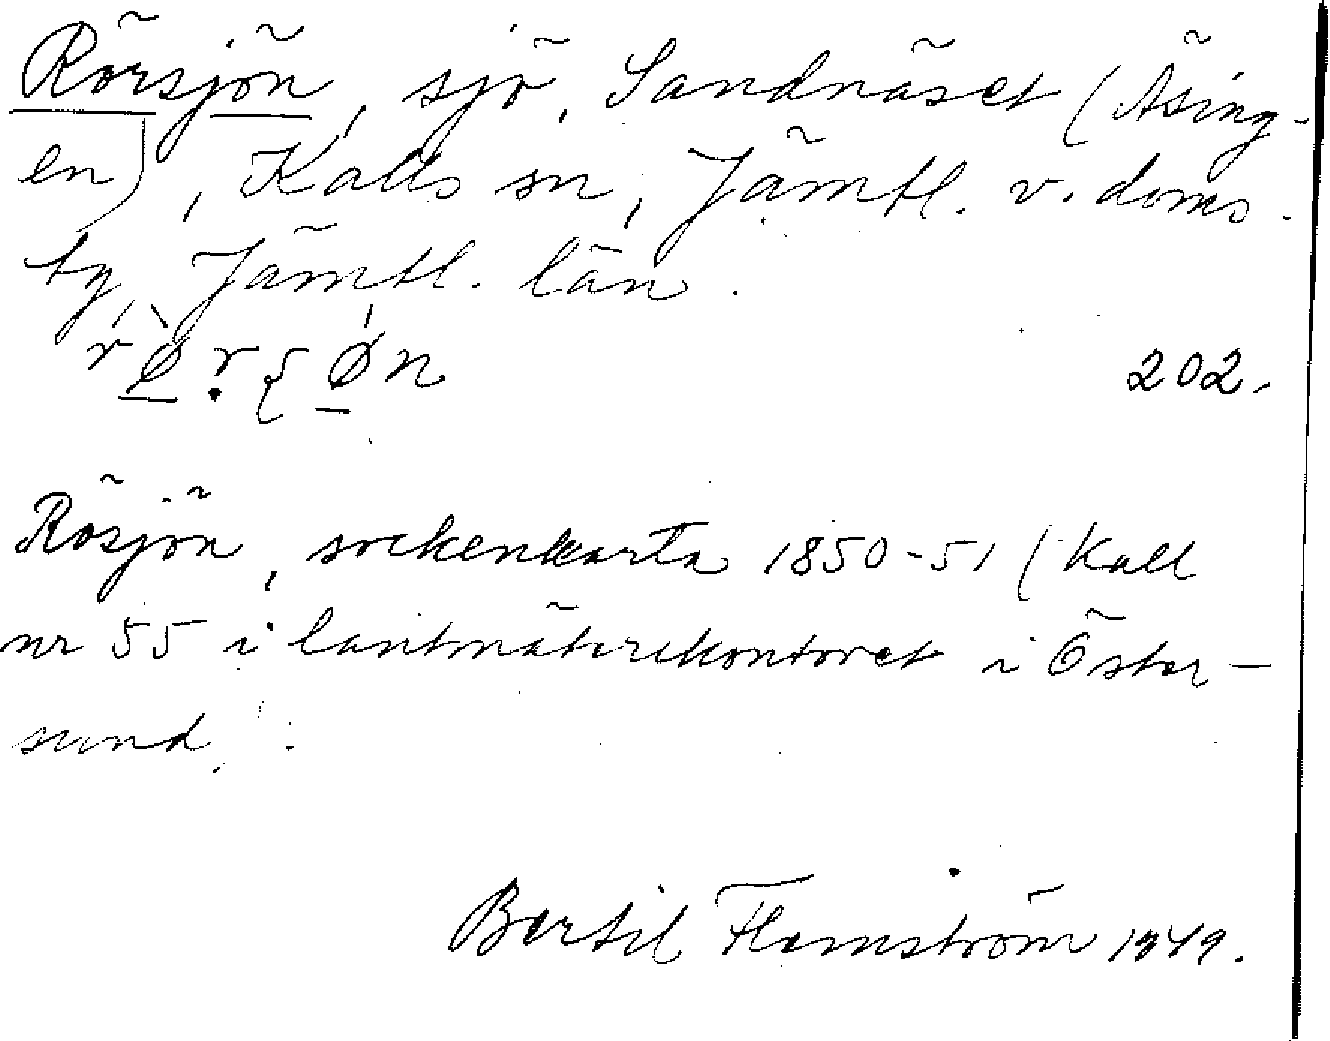 Rörsjön, sjö, Sandnäset (Äsing-
en), Kalls sn, Jämtl. v. doms.
by, Jämtl. län.
202.
Rösjön, sockenkarta 1850-51 (Kall
nr 55 i lantmäterikontoret i Öster-
sund.
Bertil Flemström 1949.